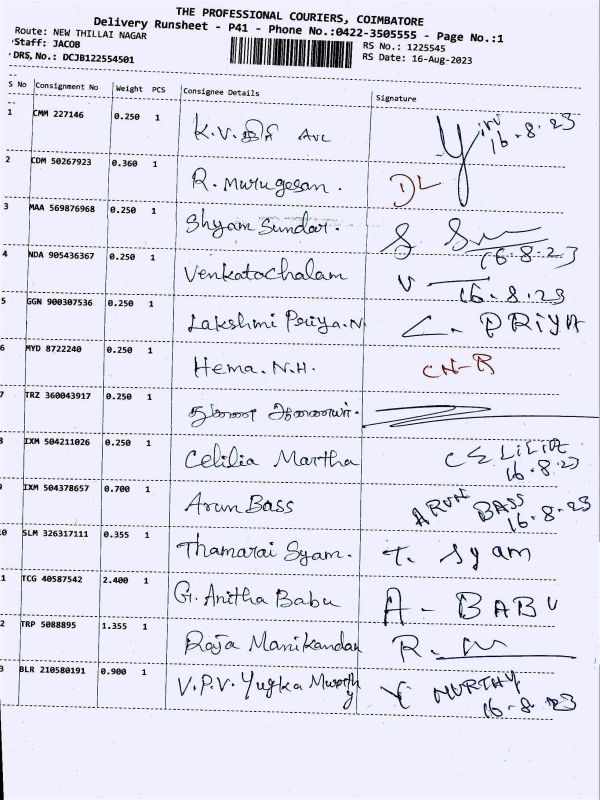 THE PROFESSIONAL COURIERS, COIMBATORE
Delivery Runsheet - P41 - Phone No.:0422-3505555 - Page No.:1
Route: NEW THILLAI NAGAR
RS No.: 1225545
Staff: JACOB
RS Date: 16-Aug-2023
DRS, No.: DCJB122554501
S No Consignment No Weight PCS Consignee Details Signature
1 CMM 227146 0.250 1 K.V. AVL 16-8-23
2 CDM 50267923 0.360 1 R. Murugesan. DL
3 MAA 569876968 0.250 1 Shyam Sundar. S 16-8-23
4 NDA 905436367 0.250 1 Venkatachalam V 16.8.23
5 GGN 900307536 0.250 1 Lakshmi Priya.N. L. PRIYA
6 MYD 8722240 0.250 1 Hema. N.H. CN-R
7 TRZ 360043917 0.250 1
8 IXM 504211026 0.250 1 Celilia Martha 16.8.23
9 IXM 504378657 0.700 1 Arun Bass ARUN BASS 16-8-23
0 SLM 326317111 0.355 1 Thamarai Syam. T. Syam
1 TCG 40587542 2.400 1 G. Anitha Babu A - BABU
2 TRP 5088895 1.355 1 Raja Manikandan R.
3 BLR 210580191 0.900 1 V.P.V. Yugka Murthy Y MURTHY 16-8-23